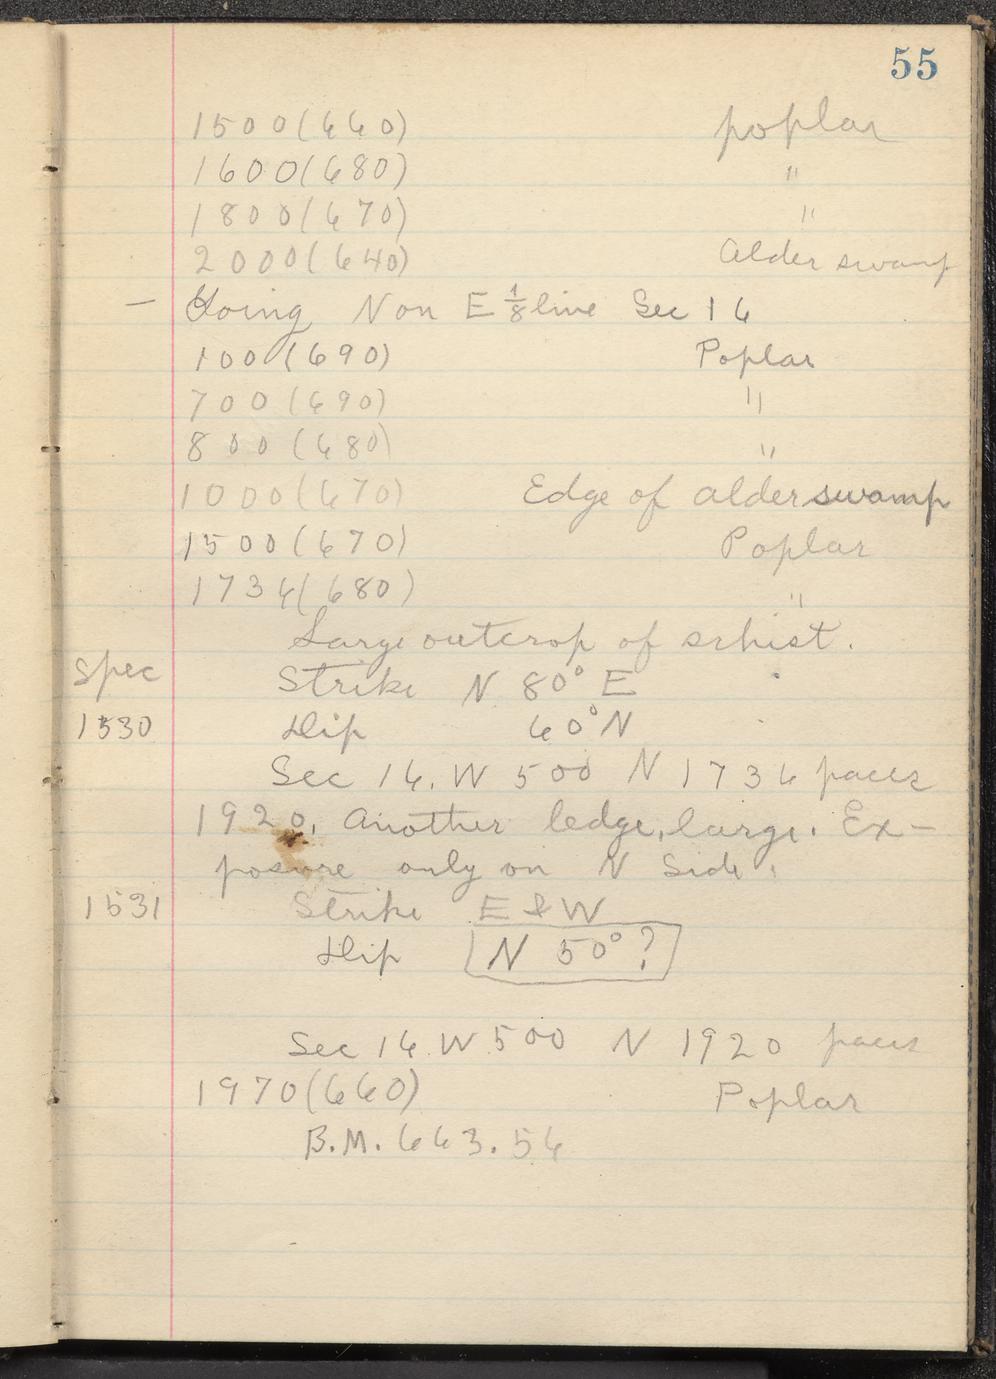 55
1500(660) poplar
1600(680) "
1800(670) "
2000(640) Alder swamp
— Going N on E 1/8 line Sec 16
100(690) Poplar
700(690) "
800(680) "
1000(670) Edge of alder swamp
1500(670) Poplar
1736(680) "
Large outcrop of schist.
Spec Strike N 80° E
1530 Dip 60° N
Sec 16. W 500 N 1736 paces
1920. Another ledge, large. Ex-
posure only on N Side.
1531 Strike E & W
Dip N 50° ?
Sec 16 W 500 N 1920 paces
1970(660) Poplar
B.M. 663.56